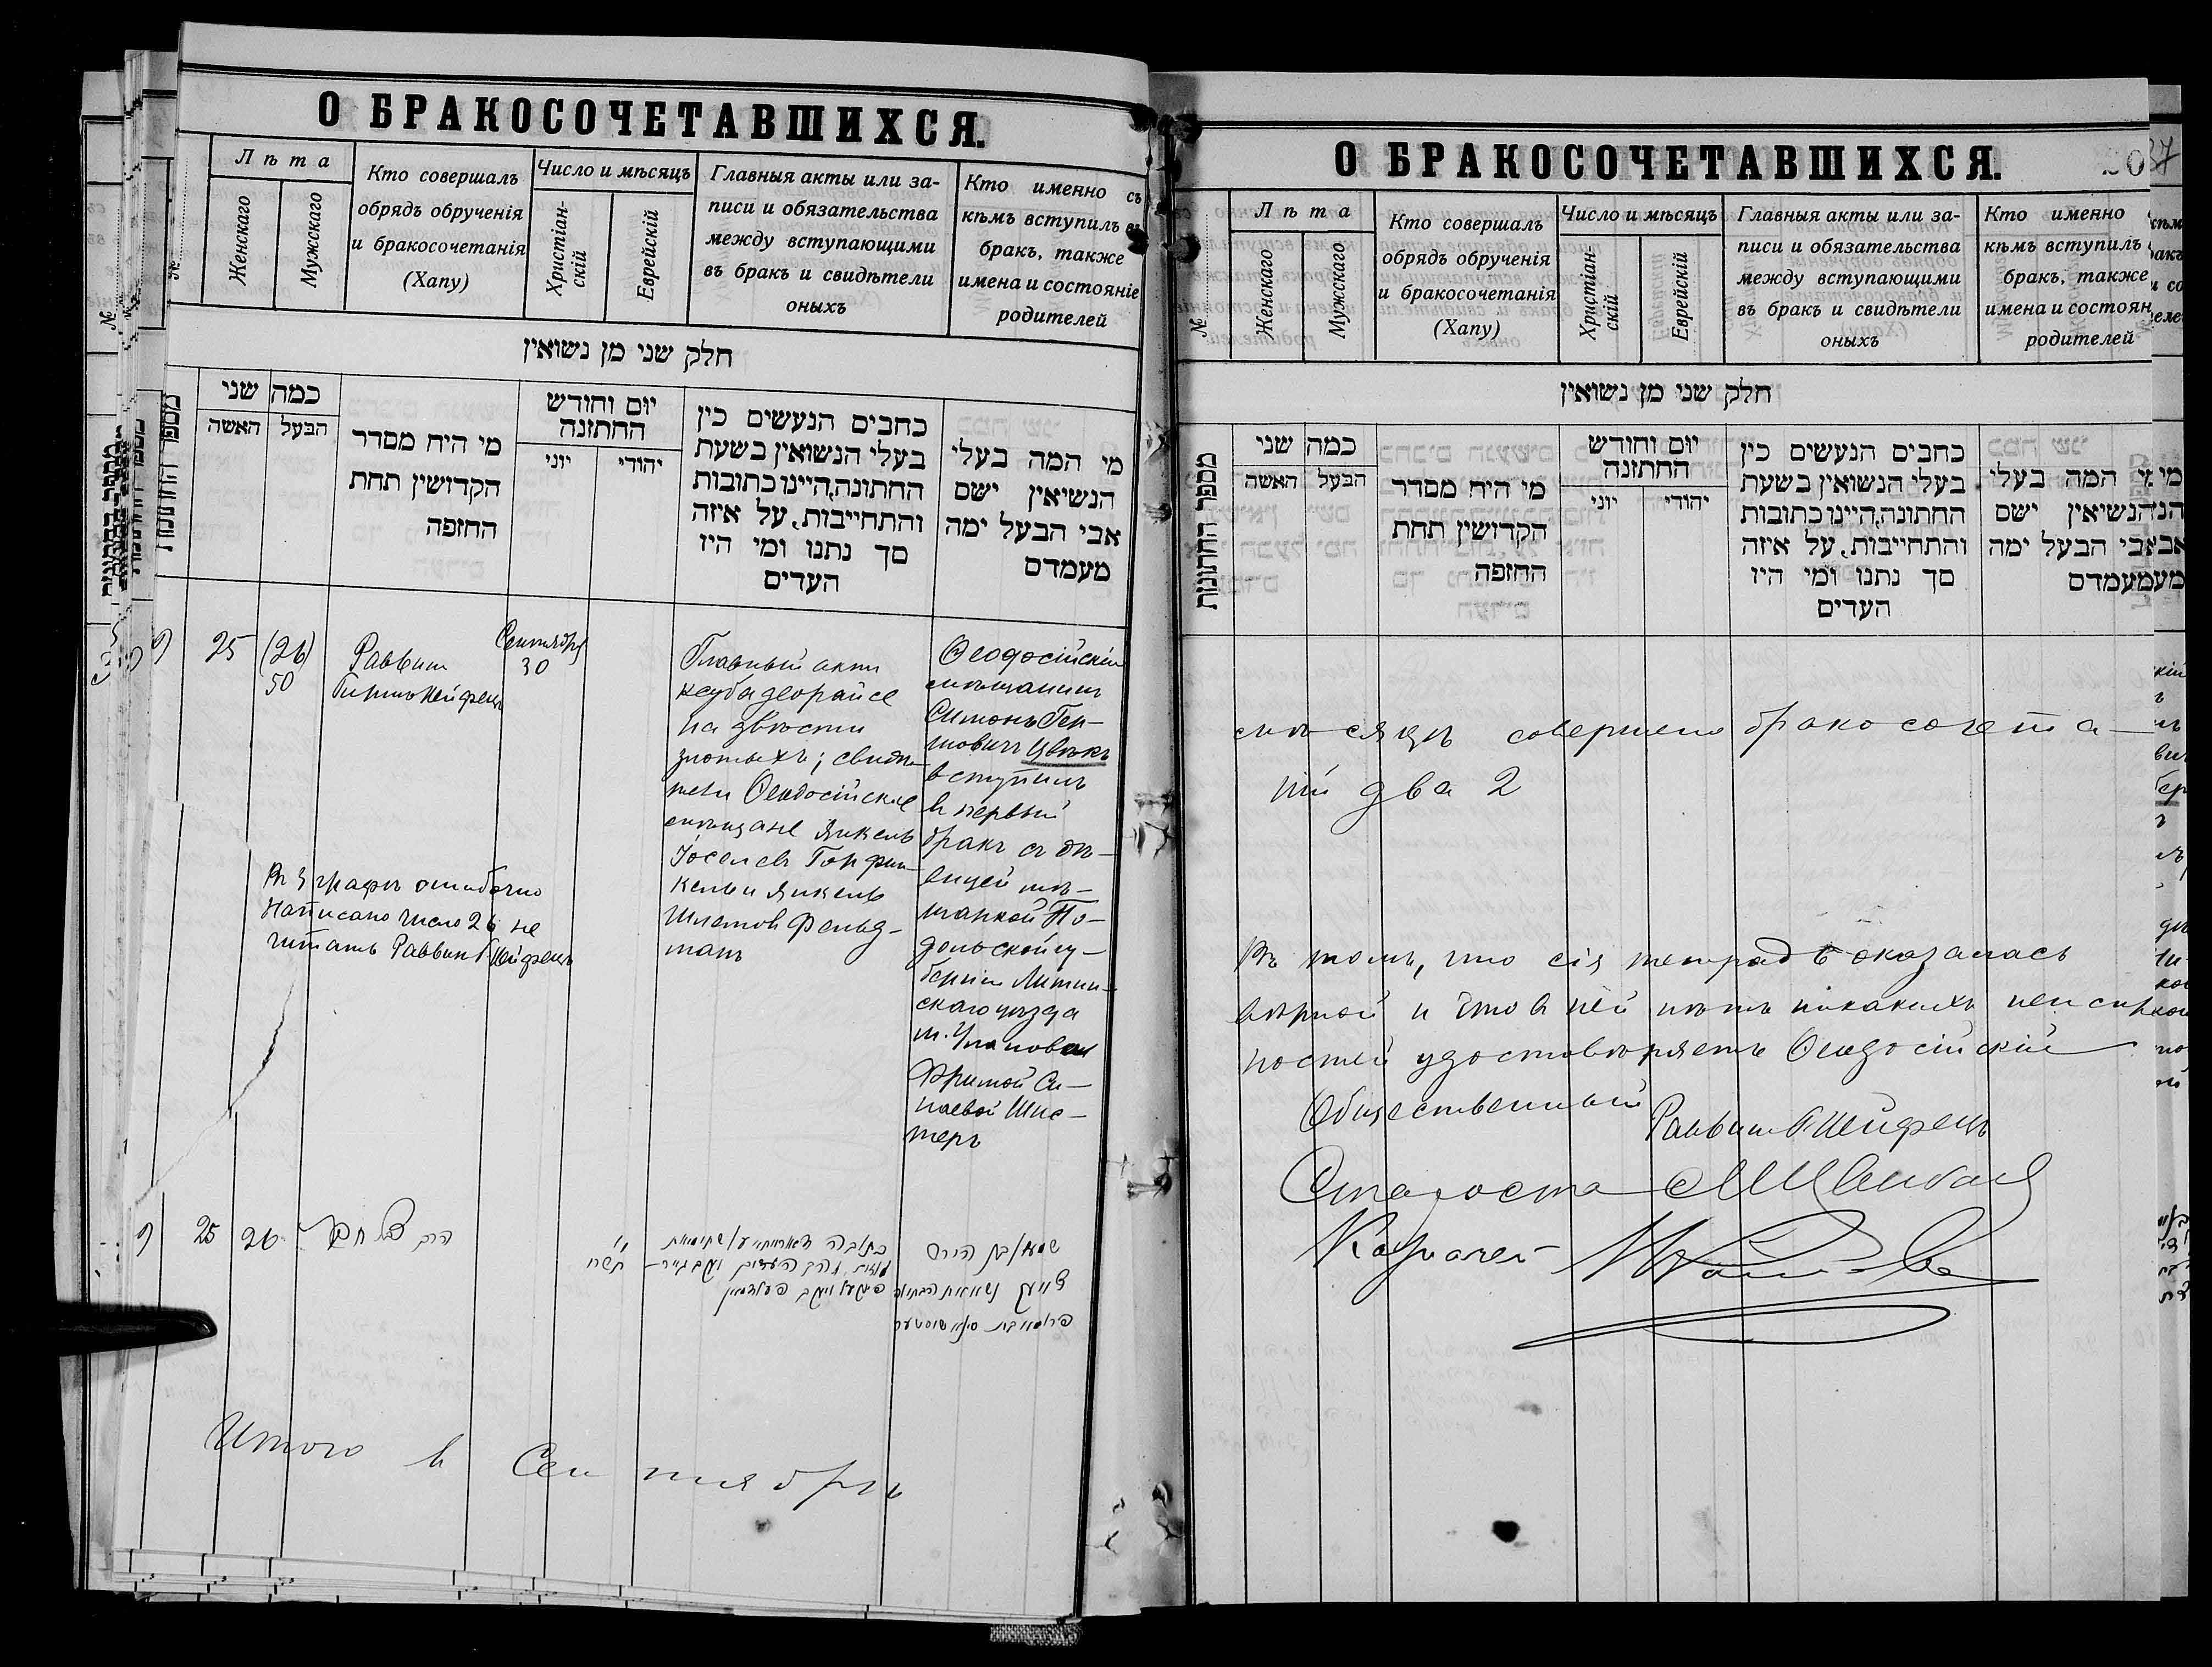 О БРАКОСОЧЕТАВШИХСЯ.
№
Лѣта
Женскаго
Мужскаго
Кто совершалъ
обрядъ обрученія
и бракосочетанія
(Хапу)
Число и мѣсяцъ
Христіан-
скій
Еврейскій
Главныя акты или за-
писи и обязательства
между вступающими
въ бракъ и свидѣтели
оныхъ
Кто именно съ
кѣмъ вступилъ въ
бракъ, также
имена и состояніе
родителей
חלק שני מן נשואין
מספר החתונות
כמה שני
האשה
הבעל
מי היח מסדר
הקדושין תחת
החזפה
יום וחודש
החתזנה
יוני
יהודי
כחבים הנעשים כין
בעלי הנשואין בשעת
החתונה,היינו כתובות
והתחייבות, על איזה
סך נתנו ומי היז
העדים
מי המה בעלי
הנשיאין ישם
אבי הבעל ימה
מעמדם
25
(26)
50
Раввинъ
Сентября
30
Главный актъ
на двѣсти
злотыхъ; свидѣ-
тели Ѳеодосійскіе
мѣщане Янкель
Янкель
Шлемовъ Фельд-
манъ
Ѳеодосійскій
мѣщанинъ
Симонъ Гер-
шовичъ Цвѣкъ
вступилъ
въ первый
бракъ съ дѣ-
вицей мѣ-
щанкой По-
дольской гу-
берніи Литин-
скаго уѣзда
Фримой Си-
наевой Шис-
теръ
Въ 3 графѣ ошибочно
написано число 26 не
читать Раввинъ Б Хейфецъ
25
26
הרב
תשרי
שמעון בן הירש
צוועק נשא את הבתולה
Итого въ Сентябрѣ
О БРАКОСОЧЕТАВШИХСЯ.
37
№
Лѣта
Женскаго
Мужскаго
Кто совершалъ
обрядъ обрученія
и бракосочетанія
(Хапу)
Число и мѣсяцъ
Христіан-
скій
Еврейскій
Главныя акты или за-
писи и обязательства
между вступающими
въ бракъ и свидѣтели
оныхъ
Кто именно
кѣмъ вступилъ
бракъ, также
имена и состоян
родителей
חלק שני מן נשואין
מספר החתונות
כמה שני
האשה
הבעל
מי היח מסדר
הקדושין תחת
החזפה
יום וחודש
החתזנה
יוני
יהודי
כחבים הנעשים כין
בעלי הנשואין בשעת
החתונה,היינו כתובות
והתחייבות, על איזה
סך נתנו ומי היז
העדים
המה בעלי
הנשיאין ישם
אבי הבעל ימה
מעמדם
мѣсяцѣ совершено бракосочета-
ній два 2
Въ томъ, что сія тетрадь оказалась
вѣрной и что в ней нѣтъ никакихъ неисправ
ностей удостовѣряетъ Ѳеодосійскій
Общественный
Раввинъ Б Хейфецъ
Староста
Казначей